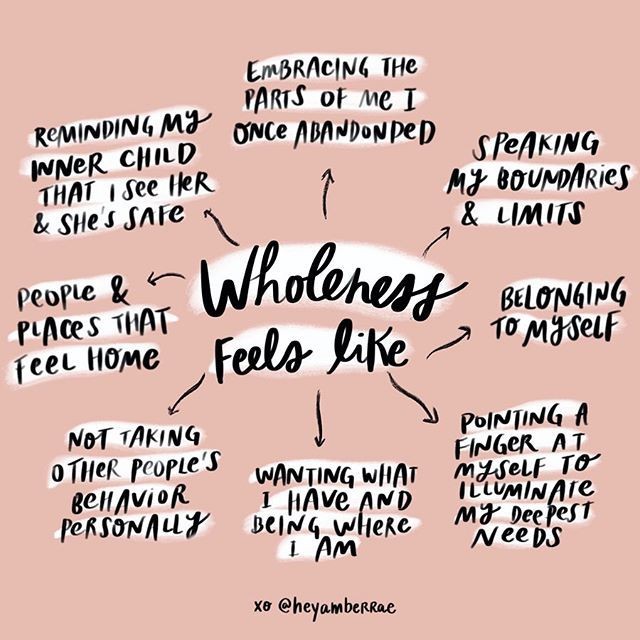 EMBRACING THE
PARTS OF ME I
ONCE ABANDONDED
REMINDING MY
INNER CHILD
THAT I SEE HER
& SHE'S SAFE
SPEAKING
MY BOUNDARIES
& LIMITS
Wholeness
Feels like
PEOPLE &
PLACES THAT
FEEL HOME
BELONGING
TO MYSELF
NOT TAKING
OTHER PEOPLE'S
BEHAVIOR
PERSONALLY
WANTING WHAT
I HAVE AND
BEING WHERE
I AM
POINTING A
FINGER AT
MYSELF TO
ILLUMINATE
MY DEEPEST
NEEDS
xo @heyamberrae